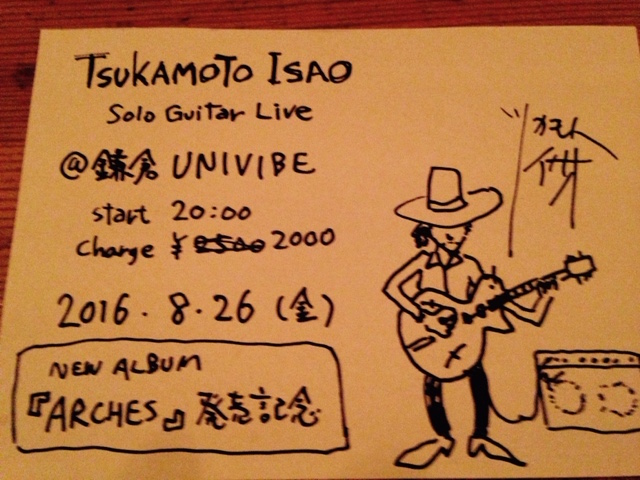 TSUKAMOTO ISAO
Solo Guitar Live
@ 鎌倉 UNIVIBE
start 20:00
Charge ¥ 2500 2000
2016.8.26 (金)
NEW ALBUM
『ARCHES』発売記念
ツカモト
功